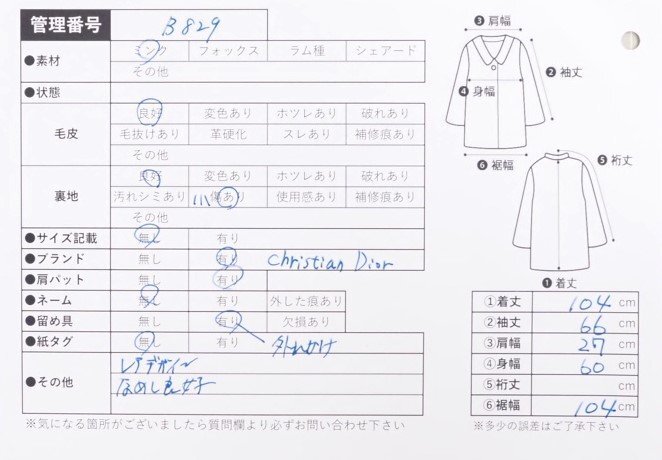 管理番号 B829
●素材 ミンク フォックス ラム種 シェアード
その他
●状態
毛皮 良好 変色あり ホツレあり 破れあり
毛抜けあり 革硬化 スレあり 補修痕あり
その他
裏地 良好 変色あり ホツレあり 破れあり
汚れシミあり 傷あり 使用感あり 補修痕あり
その他
●サイズ記載 無し 有り
●ブランド 無し 有り Christian Dior
●肩パット 無し 有り
●ネーム 無し 有り 外した痕あり
●留め具 無し 有り 欠損あり
●紙タグ 無し 有り 外れかけ
●その他
なめし良好
※気になる箇所がございましたら質問欄より必ずお問い合わせ下さい
❸肩幅
❷袖丈
❹身幅
❻裾幅
❺裄丈
❶着丈
①着丈 104 cm
②袖丈 66 cm
③肩幅 27 cm
④身幅 60 cm
⑤裄丈 cm
⑥裾幅 104 cm
※多少の誤差はご了承下さい